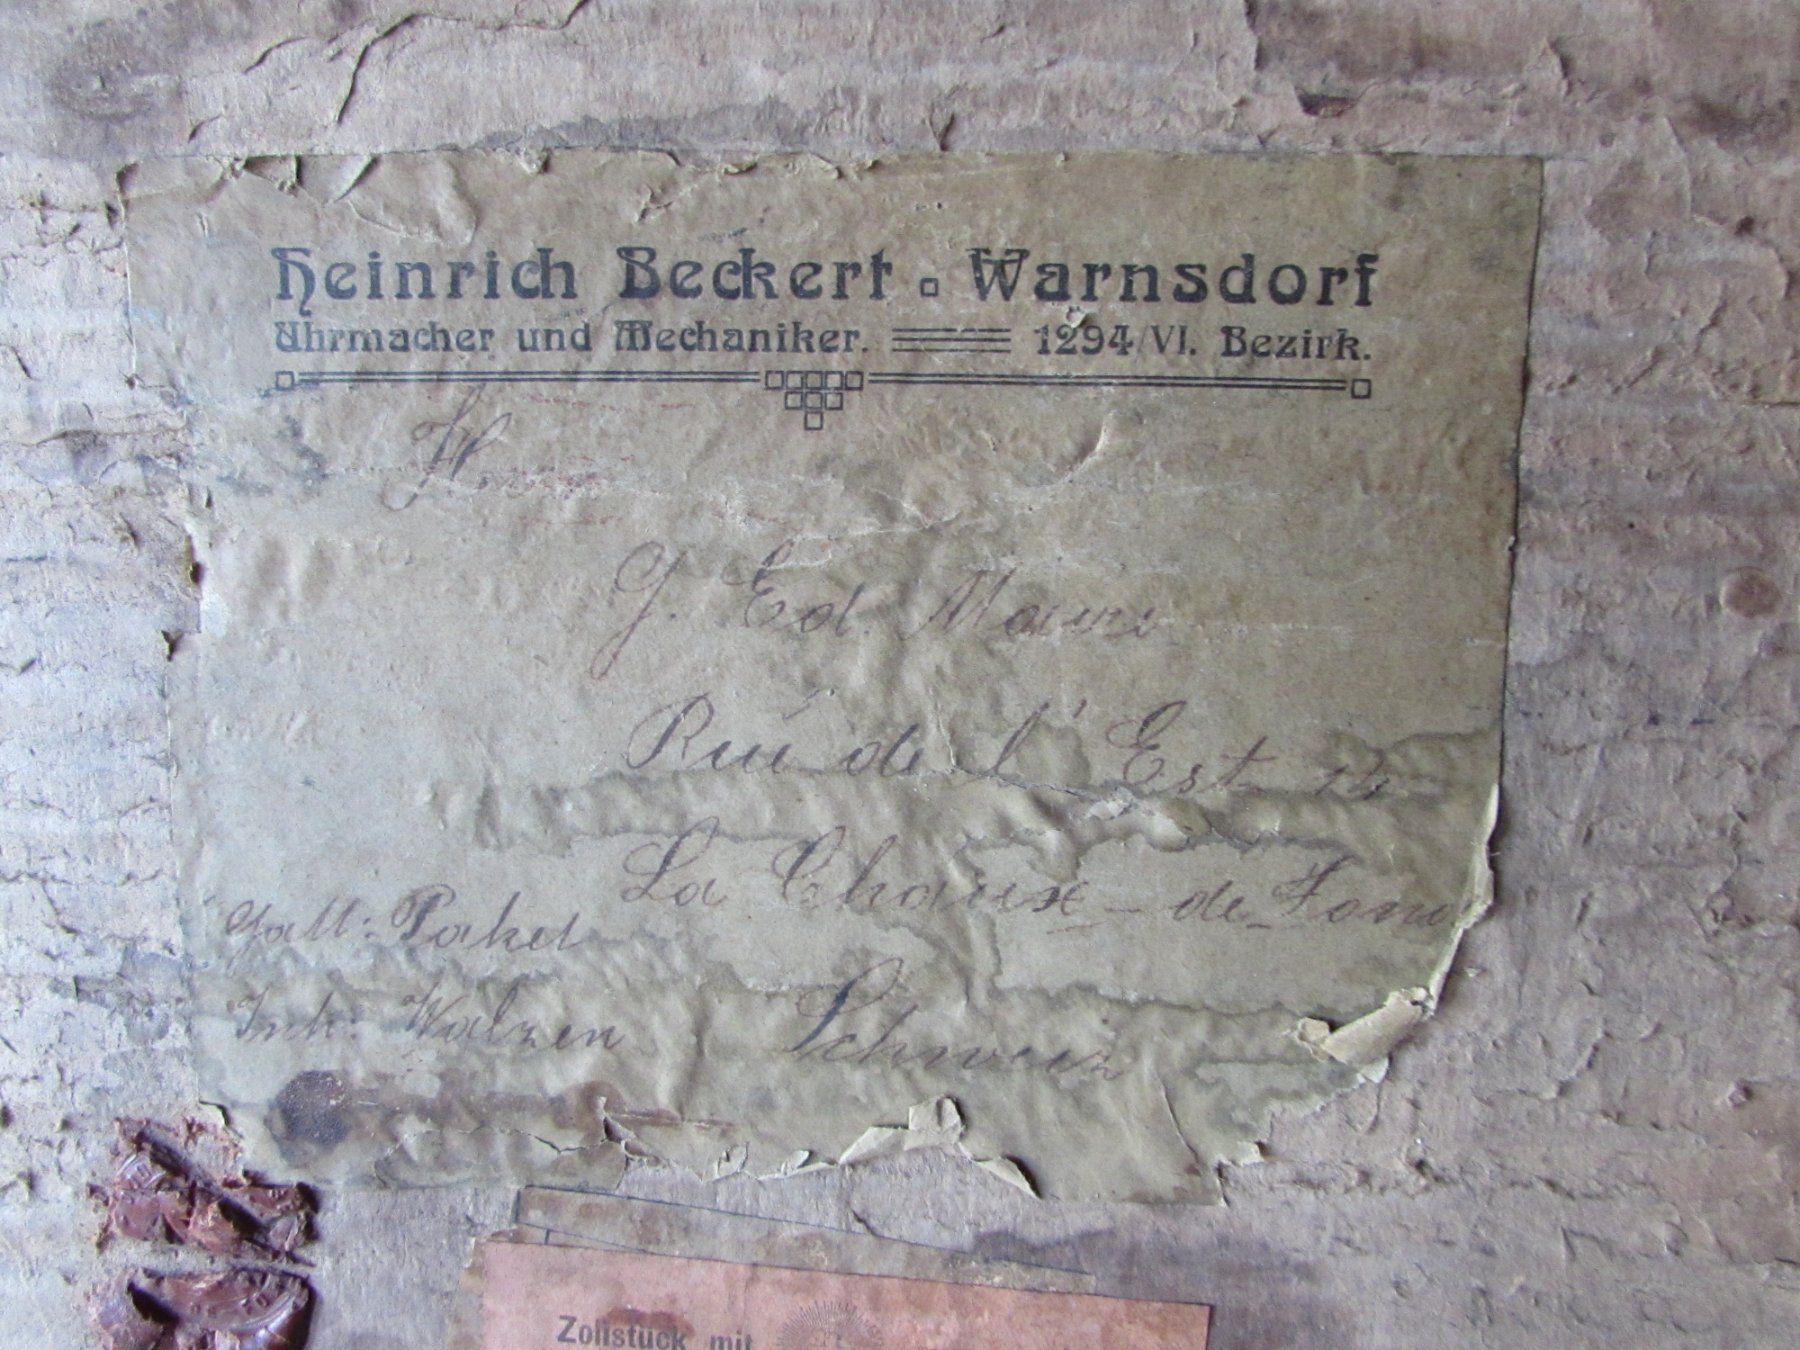 Heinrich Beckert ▫ Warnsdorf
Uhrmacher und Mechaniker. 1294/VI. Bezirk.
G. Ed.
Rue de l'Est
La Chaux-de-Fon
Gatt: Paket
Inh: Walzen
Schweiz
Zollstück mit